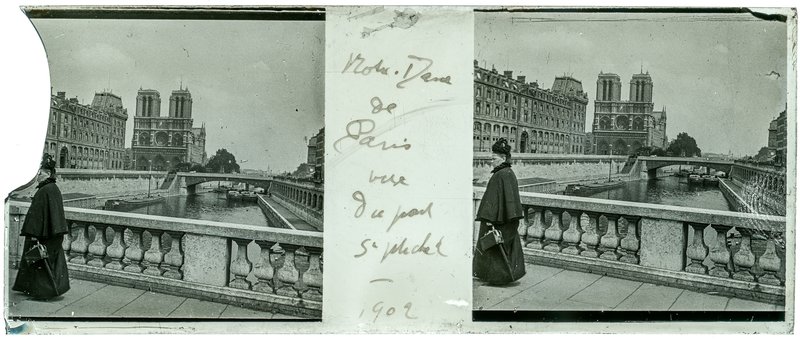 Notre-Dame
de
Paris
vue
du pont
St Michel
—
1902